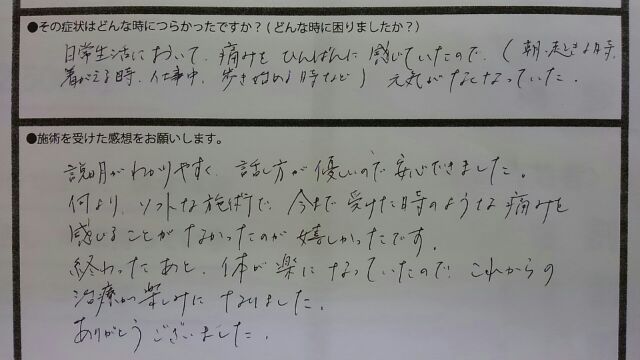 ●その症状はどんな時につらかったですか？（どんな時に困りましたか？）
日常生活において、痛みをひんぱんに感じていたので、（朝、起きる時、
着がえる時、仕事中、歩き始める時など）元気がなくなっていた。
●施術を受けた感想をお願いします。
説明がわかりやすく、話し方が優しいので安心できました。
何より、ソフトな施術で、今まで受けた時のような痛みを
感じることがなかったのが嬉しかったです。
終わったあと、体が楽になっていたので、これからの
治療が楽しみになりました。
ありがとうございました。